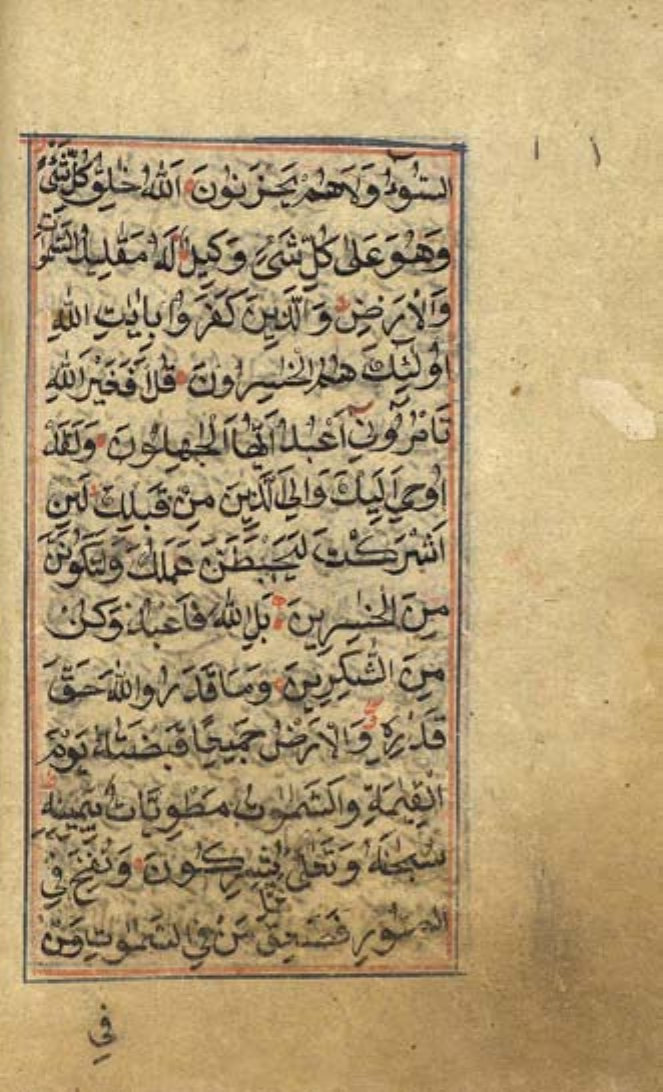 السُّوٓءُ وَلَاهُمْ يَحْزَنُونَ اَللّٰهُ خٰلِقُ كُلِّ شَىْءٍ
وَهُوَ عَلٰى كُلِّ شَىْءٍ وَكِيلٌ لَهُ مَقٰلِيدُ السَّمٰوٰتِ
وَالْاَرْضِ وَالَّذِينَ كَفَرُوا بِاٰيٰتِ اللّٰهِ
اُولٰٓئِكَ هُمُ الْخٰسِرُونَ قُلْ اَفَغَيْرَ اللّٰهِ
تَاْمُرُوٓنِّىٓ اَعْبُدُ اَيُّهَا الْجٰهِلُونَ وَلَقَدْ
اُوحِىَ اِلَيْكَ وَاِلَى الَّذِينَ مِنْ قَبْلِكَ لَئِنْ
اَشْرَكْتَ لَيَحْبَطَنَّ عَمَلُكَ وَلَتَكُونَنَّ
مِنَ الْخٰسِرِينَ بَلِ اللّٰهَ فَاعْبُدْ وَكُنْ
مِنَ الشّٰكِرِينَ وَمَا قَدَرُوا اللّٰهَ حَقَّ
قَدْرِهِ وَالْاَرْضُ جَمِيعًا قَبْضَتُهُ يَوْمَ
الْقِيٰمَةِ وَالسَّمٰوٰتُ مَطْوِيَّاتٌ بِيَمِينِهِ
سُبْحٰنَهُ وَتَعٰلٰى يُشْرِكُونَ وَنُفِخَ فِى
عَمَّا
الصُّورِ فَصَعِقَ مَنْ فِى السَّمٰوٰتِ وَمَنْ
فِى